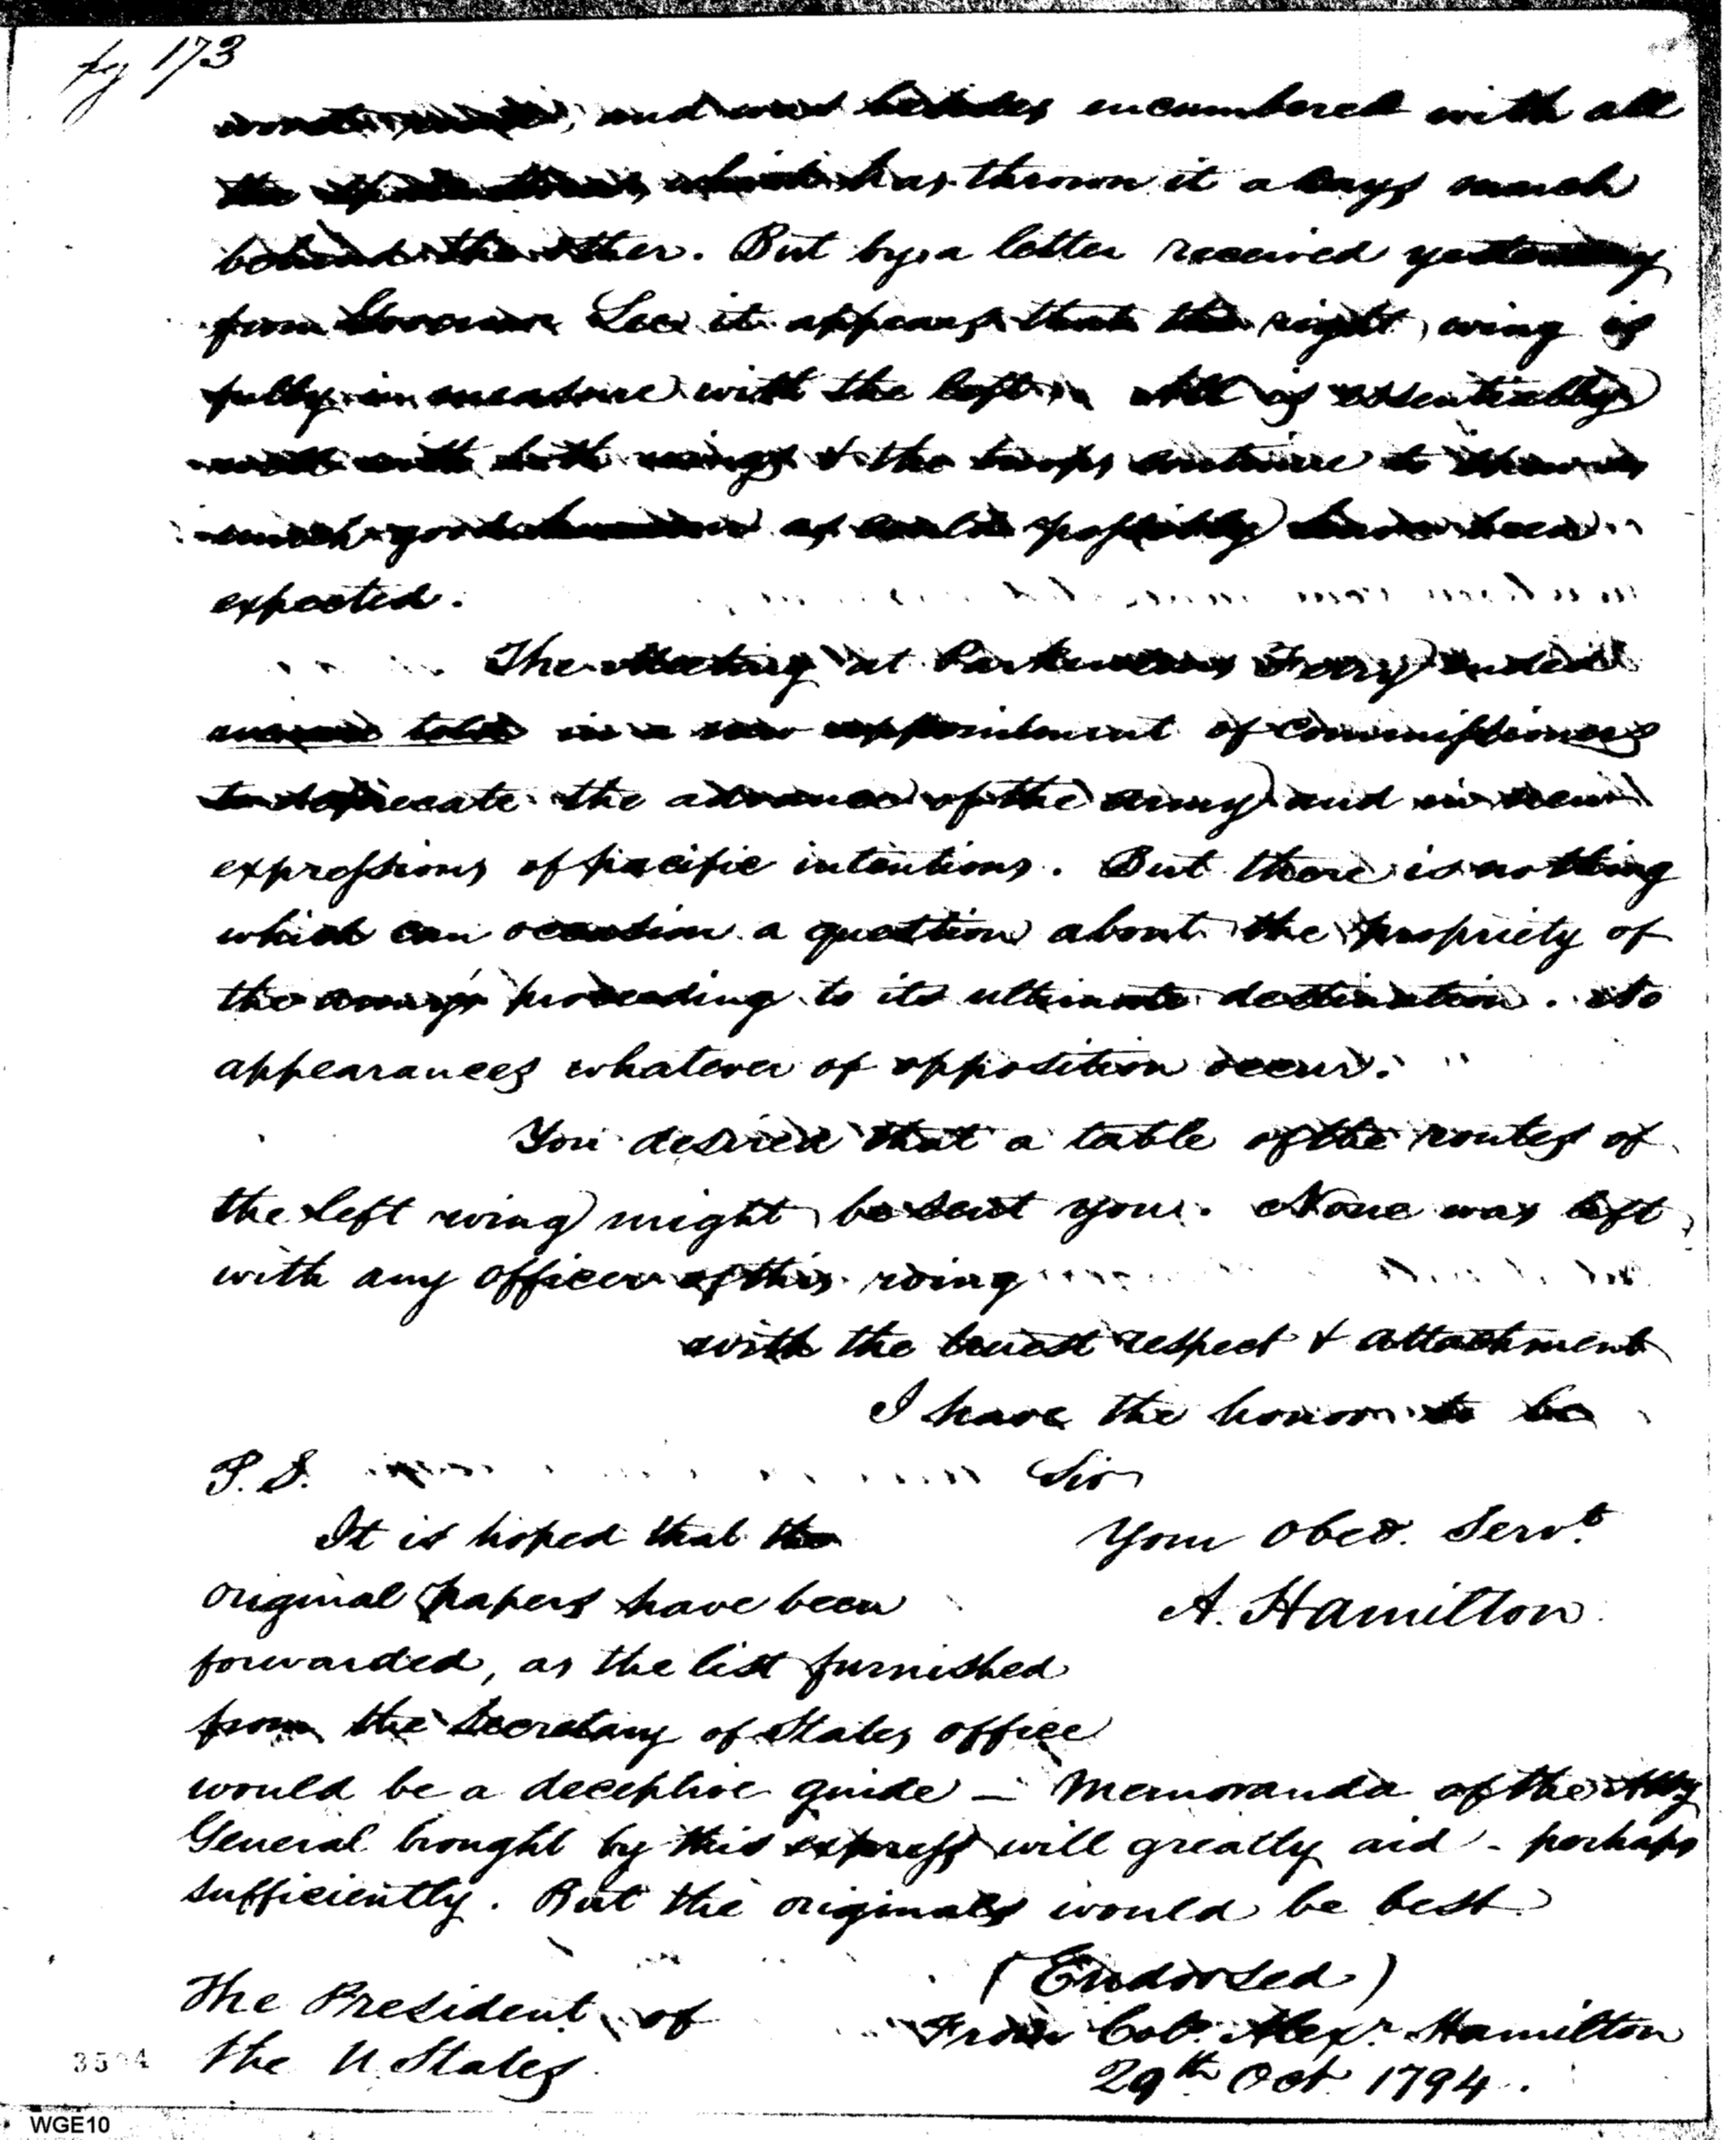 pg 173
and was besides encumbered with all
the which has thrown it a days march
behind the other. But by a letter received yesterday
from Governor Lee it appears that the right wing is
fully in measure with the left. All is essentially
well with both wings & the troops continue to shew as
much good humour as could possibly have been
expected.
The Meeting at Parkinsons Ferry ended
in a new appointment of Commissioners
to deprecate the advance of the army and in
expressions of pacific intentions. But there is nothing
which can occasion a question about the propriety of
the army's proceeding to its ultimate destination. No
appearances whatever of opposition occur.
You desired that a table of the routes of
the left wing might be sent you. None was left
with any officer of this wing
with the truest respect & attachment
I have the honor to be
P.S. Sir
It is hoped that the Your Obed. Servt.
original papers have been A. Hamilton
forwarded, as the list furnished
from the Secretary of States office
would be a deceptive guide — Memoranda of the Atty
General brought by this express will greatly aid - perhaps
sufficiently. But the originals would be best.
(Endorsed)
The President of From Colo. Alexr. Hamilton
the U. States 29th Oct 1794.
WGE10